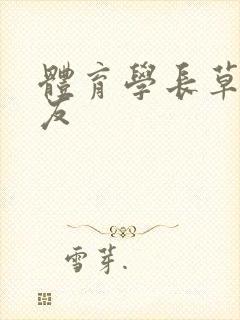 體育學長草
友
雪芽.